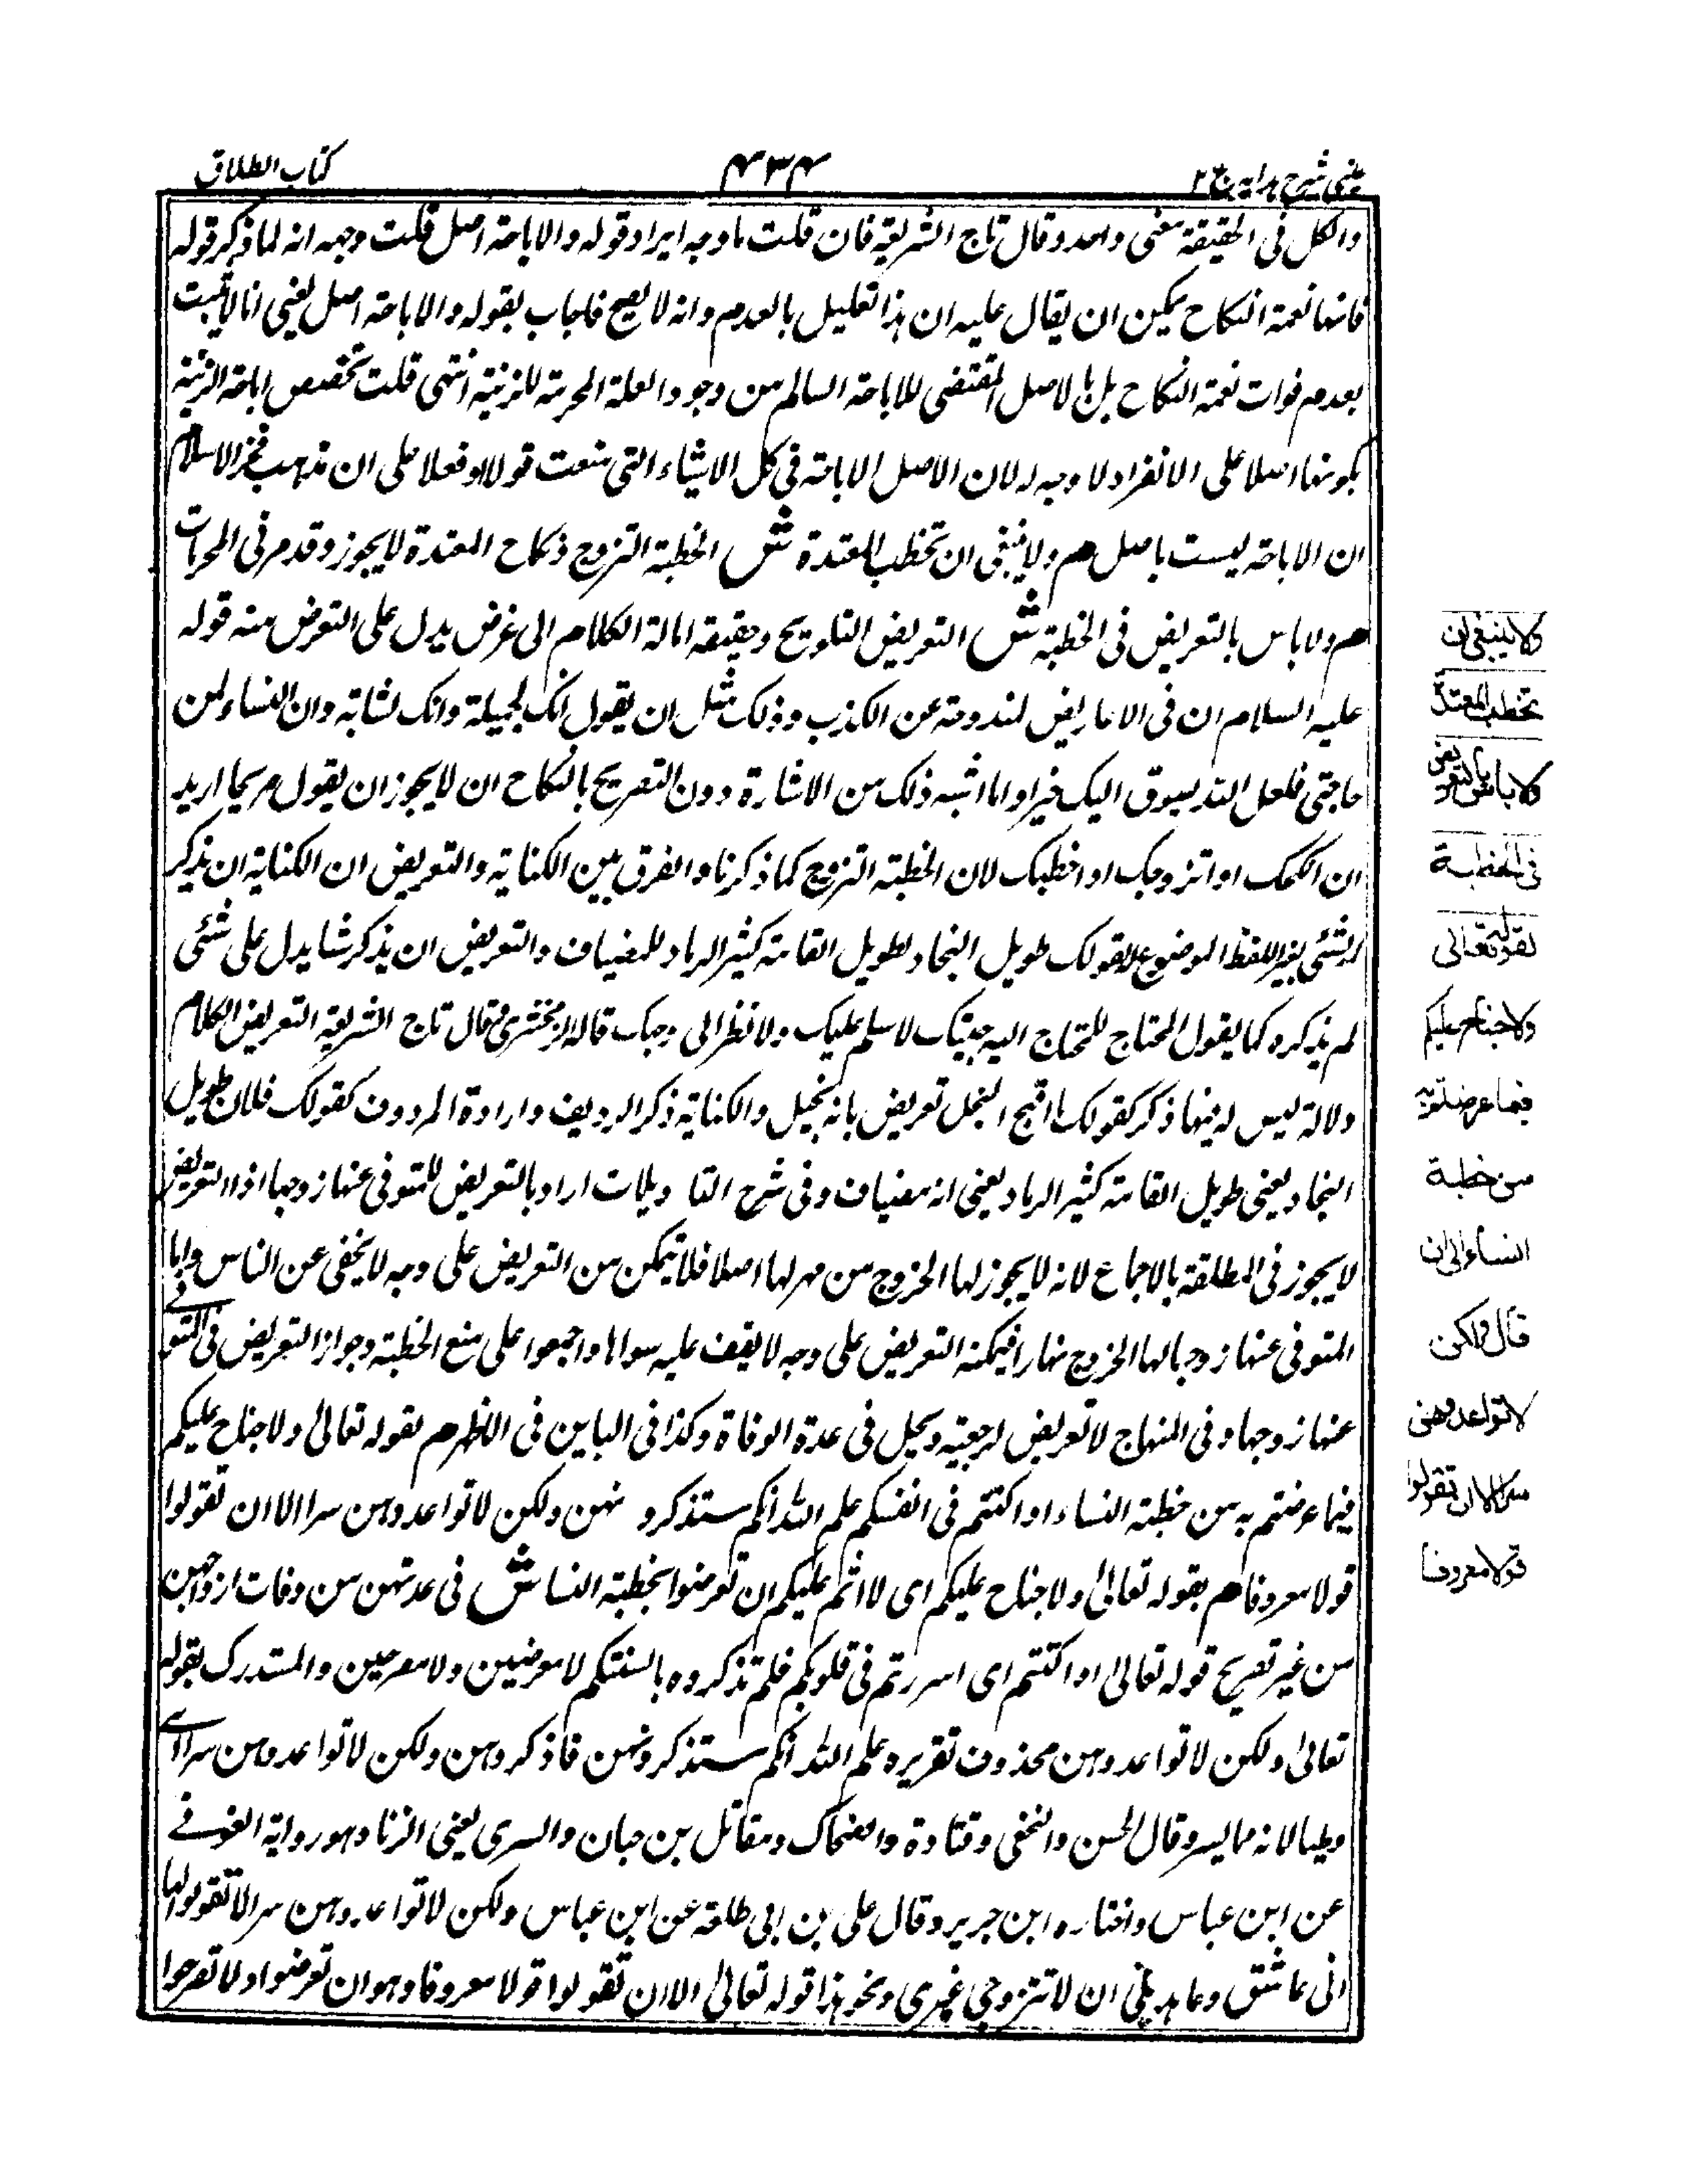 عینی شرح ہدایہ ج ۲
۴۳۴
کتاب الطلاق
والکل فی الحقیقة معنی واحد وقال تاج الشریعة فان قلت ما وجه ایراد قوله والاباحة اصل قلت وجهه انه لما ذکر قوله
فاتها نعمة النکاح یمکن ان یقال علیه ان هذا تعلیل بالعدم وانه لا یصح فاجاب بقوله والاباحة اصل یعنی انا لا نثبت
بعدم فوات نعمة النکاح بل بالاصل المقتضی للاباحة السالم من وجود العلة المحرمة للزینة انتهی قلت تخصیص اباحة الزینة
بکونها اصلا علی الانفراد لا وجه له لان الاصل الاباحة فی کل الاشیاء التی منعت قولا او فعلا علی ان مذهب فخر الاسلام
ان الاباحة لیست باصل م ولا ینبغی ان تخطب المعتدة ش الخطبة التزوج ونکاح المعتدة لا یجوز وقد مر فی المحرمات
م ولا باس بالتعریض فی الخطبة ش التعریض التلویح وحقیقة امالة الکلام الی غرض یدل علی التعرض منه قوله
علیه السلام ان فی الاعاریض لمندوحة عن الکذب وذلک مثل ان یقول انک لجمیلة وانک لشابة وان النساء لمن
حاجتی فلعل الله یسوق الیک خیرا وما اشبه ذلک من الاشارة دون التصریح بالنکاح ان لا یجوز ان یقول صریحا ارید
ان انکحک او اتزوجک او اخطبک لان الخطبة التزوج کما ذکرنا والفرق بین الکنایة والتعریض ان الکنایة ان یذکر
الشئی بغیر اللفظ الموضوع له کقولک طویل النجاد لطویل القامة کثیر الرماد للمضیاف والتعریض ان یذکر شا یدل علی شئی
لم یذکره کما یقول المحتاج للمحتاج الیه جیتک لاسلم علیک ولانظر الی وجهک قاله الزمخشری وقال تاج الشریعة التعریض الکلام
دلالة لیس له فیها ذکر کقولک ما اقبح البخل تعریض بانه بخیل والکنایة ذکر الردیف وارادة المردوف کقولک فلان طویل
النجاد یعنی طویل القامة کثیر الرماد یعنی انه مضیاف وفی شرح التا ویلات اراد بالتعریض للمتوفی عنها زوجها اذ التعریض
لا یجوز فی المطلقة بالاجماع لانه لا یجوز لها الخروج من مهر لها اصلا فلا یتمکن من التعریض علی وجه لا یخفی عن الناس واما
المتوفی عنها زوجها لها الخروج نهارا فیمکنه التعریض علی وجه لا یقف علیه سواها واجمعوا علی منع الخطبة وجواز التعریض فی المتوفی
عنها زوجها وفی المنهاج لا تعریض لرجعیة ویحل فی عدة الوفاة وکذا فی الباین فی الاظهر م لقوله تعالیٰ ولا جناح علیکم
فیما عرضتم به من خطبة النساء او اکننتم فی انفسکم علم الله انکم ستذکرو نهن ولکن لا تواعدوهن سرا الا ان تقولوا
قولا معروفا م بقوله تعالیٰ ولا جناح علیکم ای لا اثم علیکم ان تعرضوا بخطبة النسا ش فی عدتهن من وفات ازواجهن
من غیر تصریح قوله تعالیٰ او اکننتم ای اسررتم فی قلوبکم فلم تذکروه بالسنتکم لا معرضین ولا مصرحین والمستدرک بقوله
تعالیٰ ولکن لا تواعدوهن محذوف تقریره علم الله انکم ستذکرونهن فاذکروهن ولکن لا تواعدوهن سرا ای
وطیا لانه مما یسر وقال الحسن والنخعی وقتادة والضحاک ومقاتل بن حبان والسری یعنی الزنا وهو روایة العوفی
عن ابن عباس واختاره ابن جریر وقال علی بن ابی طلحة عن ابن عباس ولکن لا تواعدوهن سرا لا تقولوا لها
انی عاشق وعاهدینی ان لا تتزوجی غیری ونحو هذا قوله تعالیٰ الا ان تقولوا قولا معروفا وهو ان تعرضوا ولا تصرحوا
ولا ینبغی ان
تخطب المعتدة
ولا باس بالتعریض
فی الخطبة
لقوله تعالی
ولا جناح علیکم
فیما عرضتم به
من خطبة
النساء الی ان
قال ولکن
لا تواعدوهن
سرا الا ان تقولوا
قولا معروفا